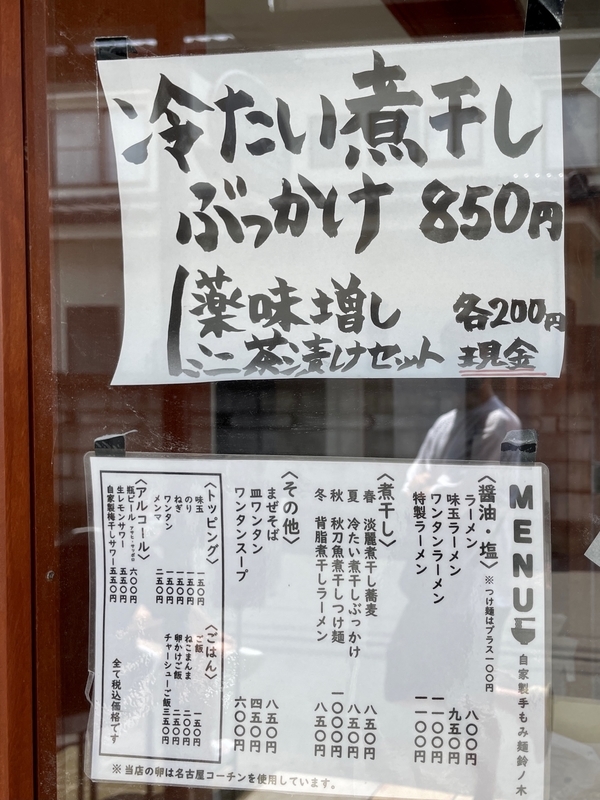 冷たい煮干し
ぶっかけ 850円
薬味増し 各200円
ミニ茶漬けセット 現金
MENU
自家製手もみ麺鈴ノ木
〈醤油・塩〉 ※つけ麺はプラス一〇〇円
ラーメン 八〇〇円
味玉ラーメン 九五〇円
ワンタンラーメン 一一〇〇円
特製ラーメン 一一〇〇円
〈煮干し〉
春 淡麗煮干し蕎麦 八五〇円
夏 冷たい煮干しぶっかけ 八五〇円
秋 秋刀魚煮干しつけ麺 一〇〇〇円
冬 背脂煮干しラーメン 八五〇円
〈その他〉
まぜそば 八五〇円
皿ワンタン 四五〇円
ワンタンスープ 六〇〇円
〈トッピング〉
味玉 一五〇円
のり 一五〇円
ねぎ 一五〇円
ワンタン 一五〇円
メンマ 二五〇円
〈ごはん〉
ご飯 一五〇円
ねこまんま 二〇〇円
卵かけご飯 二五〇円
チャーシューご飯 三五〇円
〈アルコール〉
瓶ビール アサヒ・サッポロ 六〇〇円
生レモンサワー 五五〇円
自家製梅干しサワー 五五〇円
全て税込価格です
※当店の卵は名古屋コーチンを使用しています。